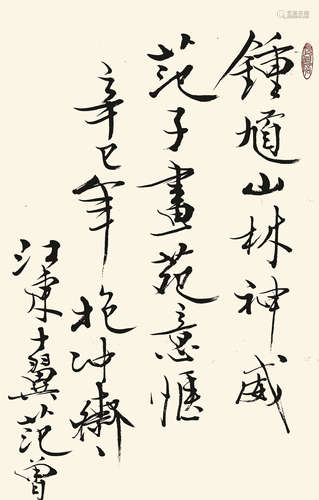 鍾馗山林神威
范子畫苑意愜
辛巳年抱冲齋
江東十翼范曾